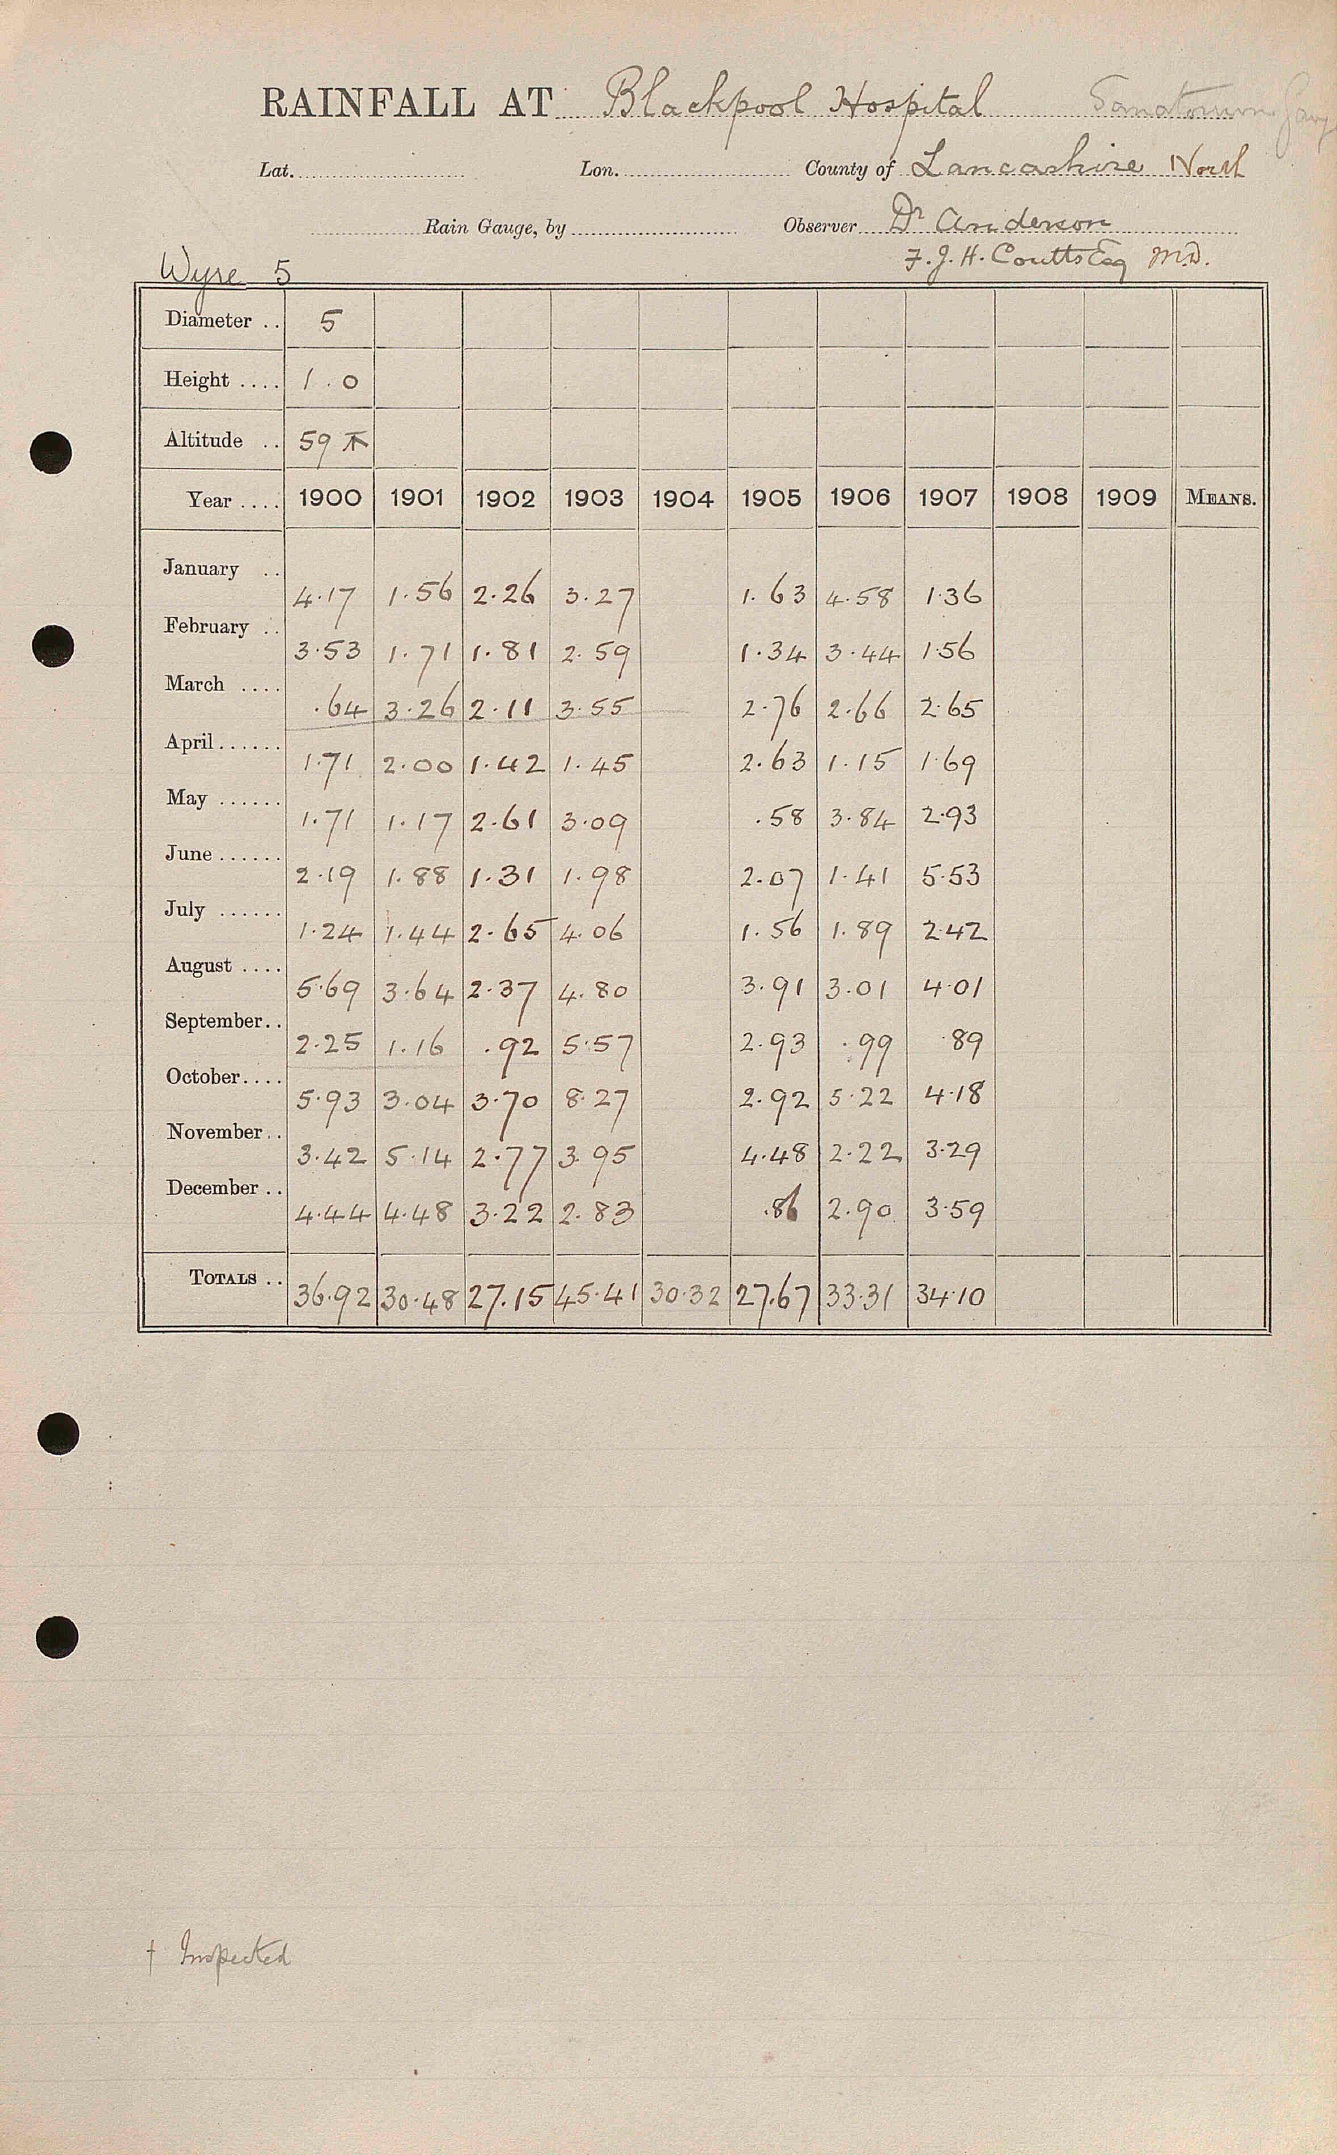 RAINFALL AT Blackpool Hospital Sanatorium
Lat. Lon. County of Lancashire North
Rain Gauge, by Observer Dr Anderson
F. J. H. Coutts Esq M.D.
Wyre 5
Diameter .. 5
Height .... 1.0
Altitude .. 59
Year .... 1900 1901 1902 1903 1904 1905 1906 1907 1908 1909 MEANS.
January .. 4.17 1.56 2.26 3.27 1.63 4.58 1.36
February .. 3.53 1.71 1.81 2.59 1.34 3.44 1.56
March .... .64 3.26 2.11 3.55 2.76 2.66 2.65
April...... 1.71 2.00 1.42 1.45 2.63 1.15 1.69
May ...... 1.71 1.17 2.61 3.09 .58 3.84 2.93
June ...... 2.19 1.88 1.31 1.98 2.07 1.41 5.53
July ...... 1.24 1.44 2.65 4.06 1.56 1.89 2.42
August .... 5.69 3.64 2.37 4.80 3.91 3.01 4.01
September.. 2.25 1.16 .92 5.57 2.93 .99 .89
October.... 5.93 3.04 3.70 8.27 2.92 5.22 4.18
November.. 3.42 5.14 2.77 3.95 4.48 2.22 3.29
December .. 4.44 4.48 3.22 2.83 .86 2.90 3.59
TOTALS .. 36.92 30.48 27.15 45.41 30.32 27.67 33.31 34.10
† Inspected